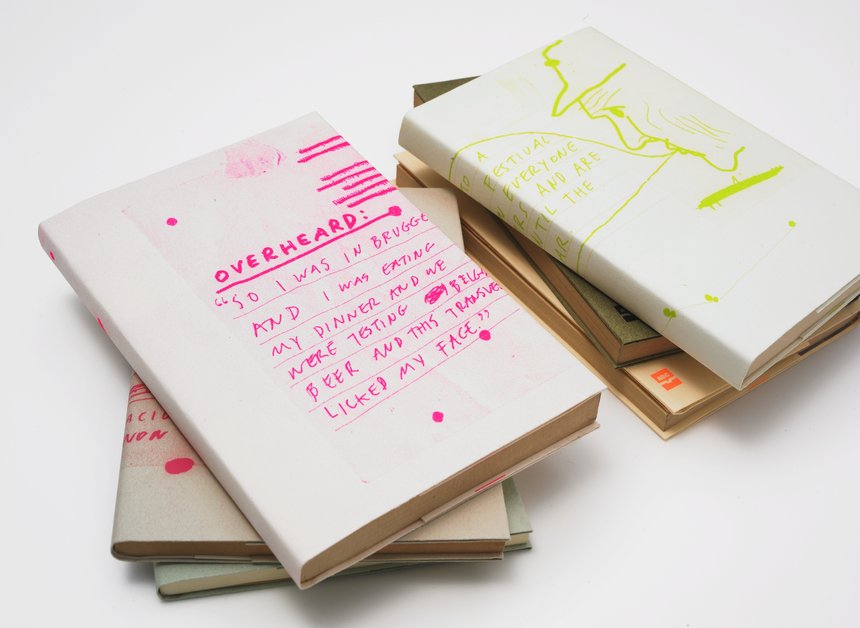 OVERHEARD:
"SO I WAS IN BRUGGE
AND I WAS EATING
MY DINNER AND WE
WERE TESTING BELGI
BEER AND THIS TRANSVES
LICKED MY FACE."
A
TO FESTIVAL
N EVERYONE
RS AND ARE
UNTIL THE
AR
ACID
NON